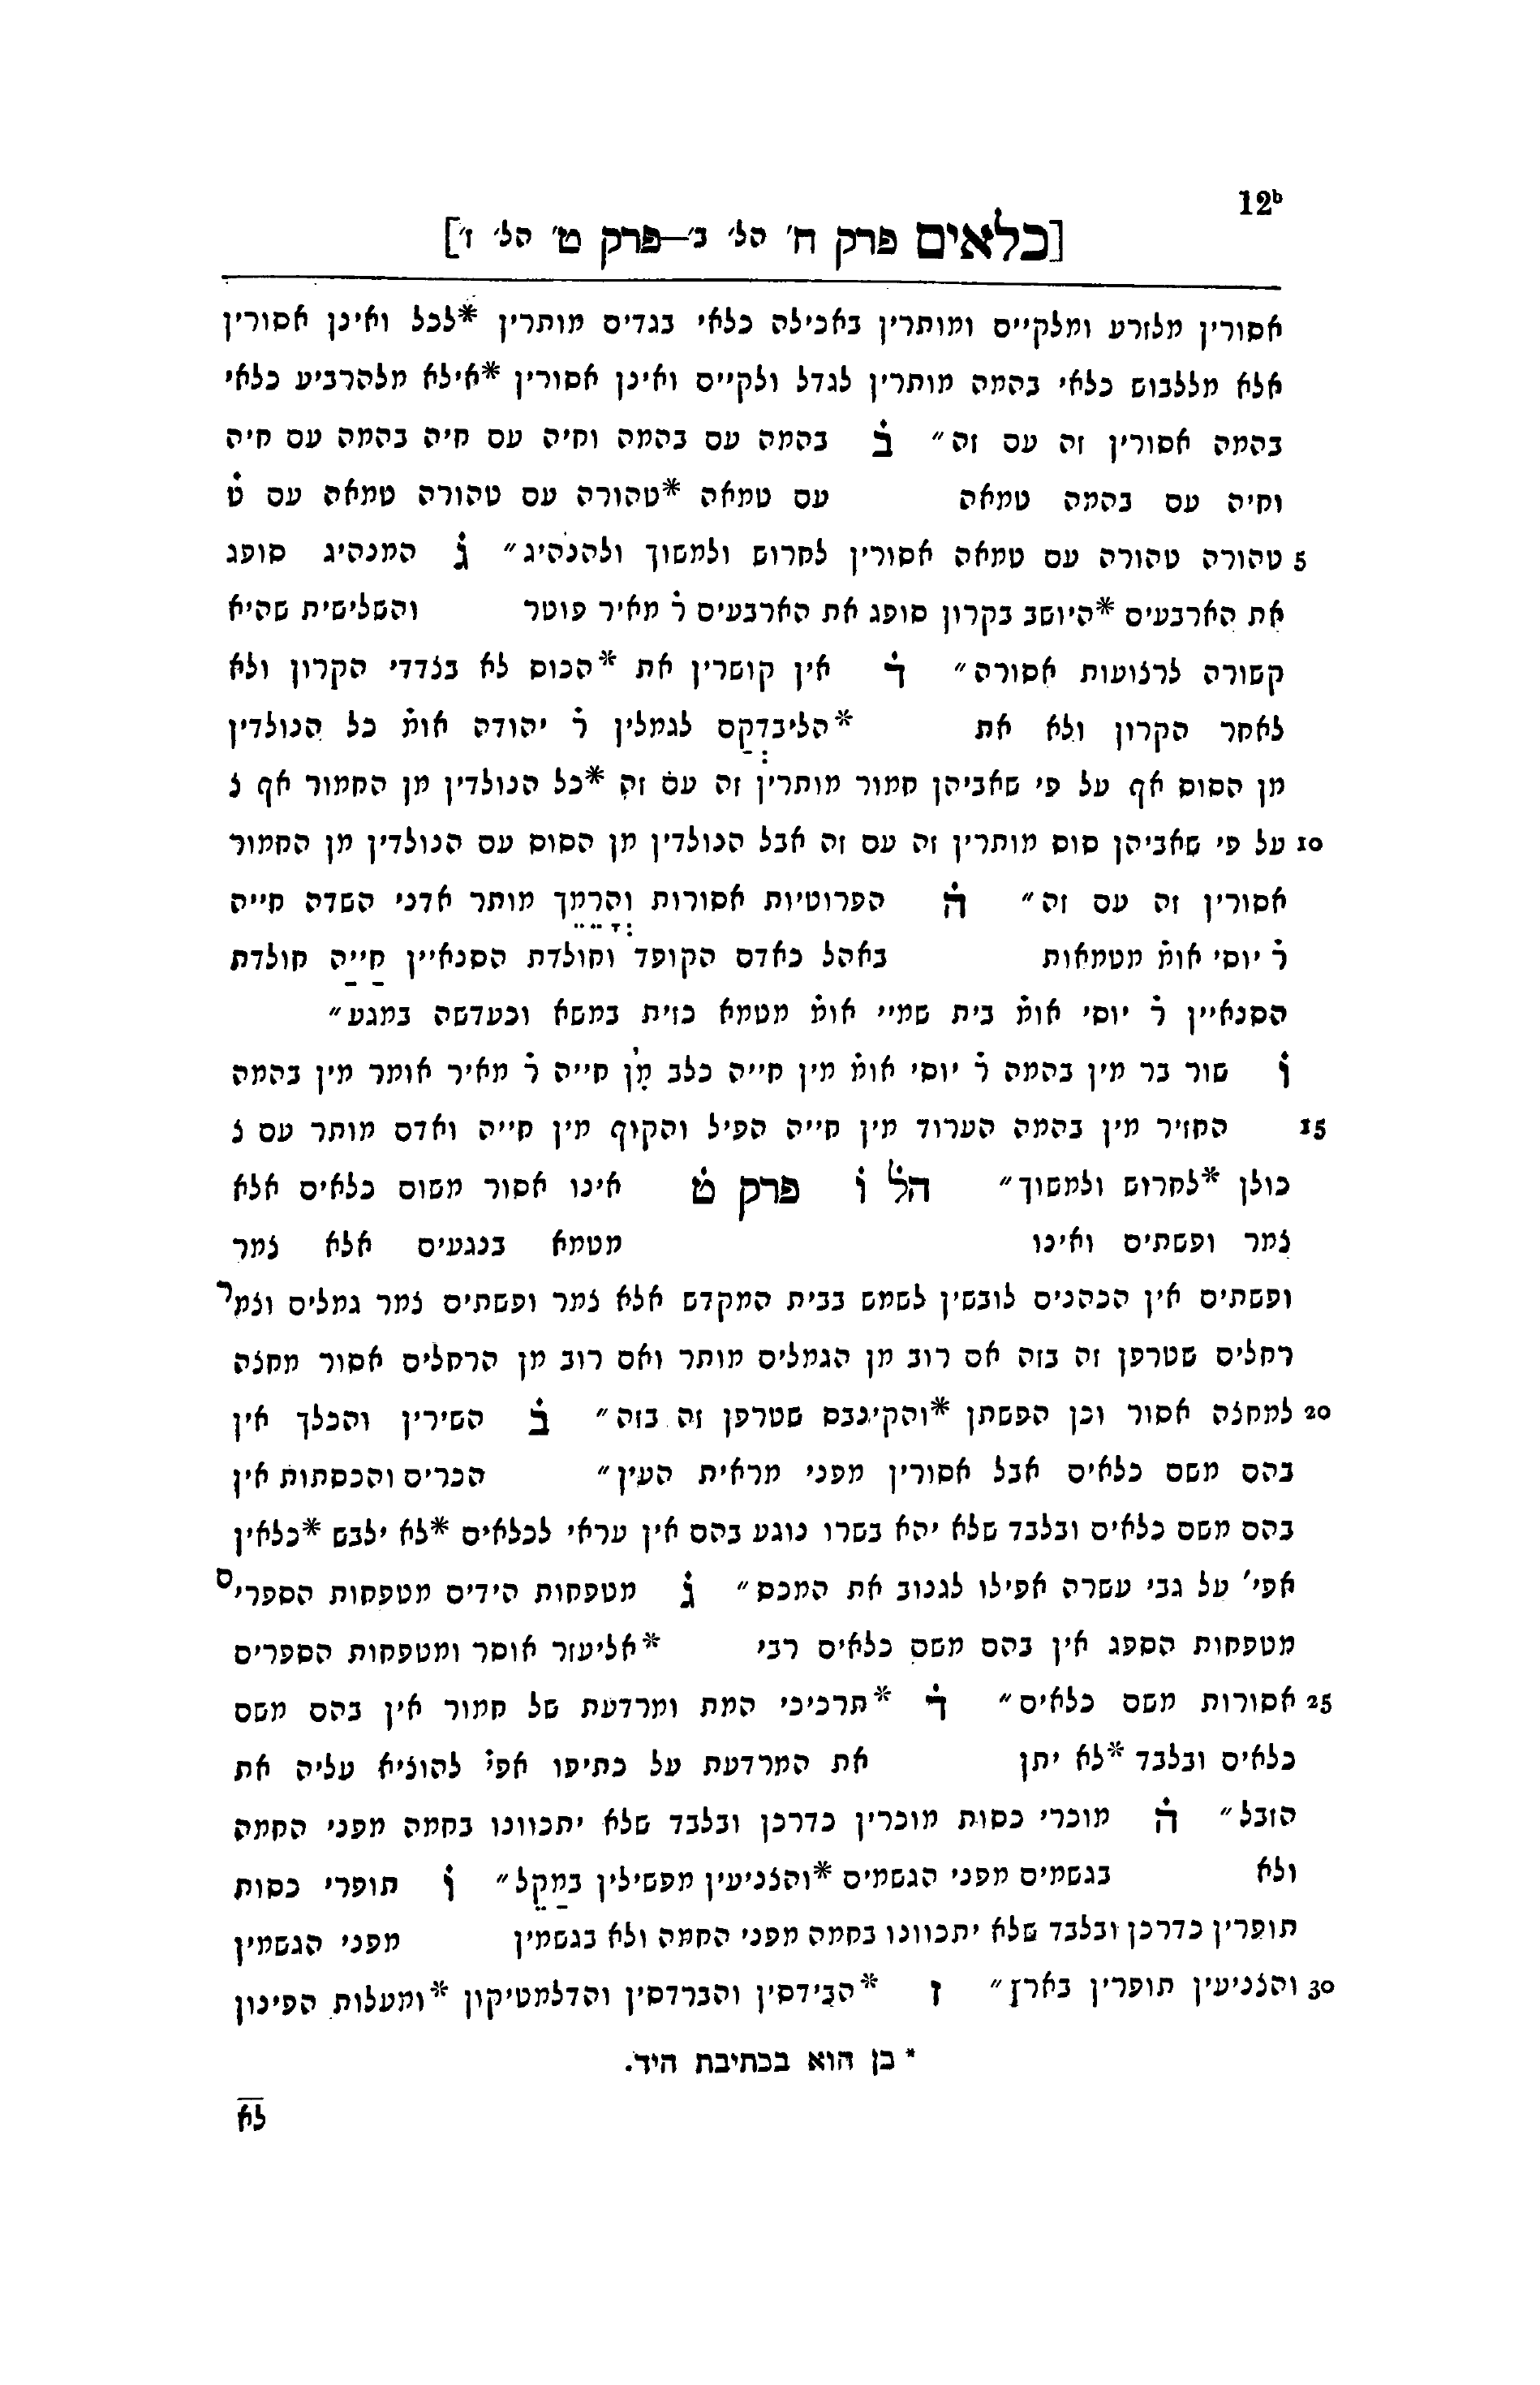 12b
[כלאים פרק ח' הל' ב'—פרק ט' הל' ז']
אסורין מלזרע ומלקיים ומותרין באכילה כלאי בגדים מותרין *לכל ואינן אסורין
אלא מללבוש כלאי בהמה מותרין לגדל ולקיים ואינן אסורין *אילא מלהרביע כלאי
בהמה אסורין זה עם זה״ ב̇ בהמה עם בהמה וחיה עם חיה בהמה עם חיה
וחיה עם בהמה טמאה עם טמאה *טהורה עם טהורה טמאה עם ט̇
5 טהורה טהורה עם טמאה אסורין לחרוש ולמשוך ולהנהיג״ ג̇ המנהיג סופג
את הארבעים *היושב בקרון סופג את הארבעים ר̇ מאיר פוטר והשלישית שהיא
קשורה לרצועות אסורה״ ד̇ אין קושרין את *הכוס לא בצדדי הקרון ולא
לאחר הקרון ולא את *הליבדְקַס לגמלין ר̇ יהודה אומ̇ כל הנולדין
מן הסוס אף על פי שאביהן חמור מותרין זה עם זה *כל הנולדין מן החמור אף צ
10 על פי שאביהן סוס מותרין זה עם זה אבל הנולדין מן הסוס עם הנולדין מן החמור
אסורין זה עם זה״ ה̇ הפרוטיות אסורות וְהָרֵמֵךְ מותר אדני השדה חייה
ר̇ יוסי אומ̇ מטמאות באהל כאדם הקופד וחולדת הסנאיין חַייַה חולדת
הסנאיין ר̇ יוסי אומ̇ בית שמיי אומ̇ מטמא כזית במשא וכעדשה במגע״
ו̇ שור בר מין בהמה ר̇ יוסי אומ̇ מין חייה כלב מ̇ן חייה ר̇ מאיר אומר מין בהמה
15 החזיר מין בהמה הערוד מין חייה הפיל והקוף מין חייה ואדם מותר עם צ
כולן *לחרוש ולמשוך״ הל̇ ו̇ פרק ט̇ אינו אסור משום כלאים אלא
צמר ופשתים ואינו מטמא בנגעים אלא צמר
ופשתים אין הכהנים לובשין לשמש בבית המקדש אלא צמר ופשתים צמר גמלים וצמר
רחלים שטרפן זה בזה אם רוב מן הגמלים מותר ואם רוב מן הרחלים אסור מחצה
20 למחצה אסור וכן הפשתן *והקינבס שטרפן זה בזה״ ב̇ השירין והכלך אין
בהם משם כלאים אבל אסורין מפני מראית העין״ הכרים והכסתות אין
בהם משם כלאים ובלבד שלא יהא בשרו נוגע בהם אין עראי לכלאים *לא ילבש *כלאין
אפי' על גבי עשרה אפילו לגנוב את המכס״ ג̇ מטפחות הידים מטפחות הספרים
מטפחות הספג אין בהם משם כלאים רבי *אליעזר אוסר ומטפחות הספרים
25 אסורות משם כלאים״ ד̇ *תרכיכי המת ומרדעת של חמור אין בהם משם
כלאים ובלבד *לא יתן את המרדעת על כתיפו אפי̇ להוציא עליה את
הזבל״ ה̇ מוכרי כסות מוכרין כדרכן ובלבד שלא יתכוונו בחמה מפני החמה
ולא בגשמים מפני הגשמים *והצניעין מפשילין בְמַקֵל״ ו̇ תופרי כסות
תופרין כדרכן ובלבד שלא יתכוונו בחמה מפני החמה ולא בגשמין מפני הגשמין
30 והצניעין תופרין בארץ״ ז *הבידסין והברדסין והדלמטיקון *ומעלות הפינון
* כן הוא בכתיבת היד.
לא